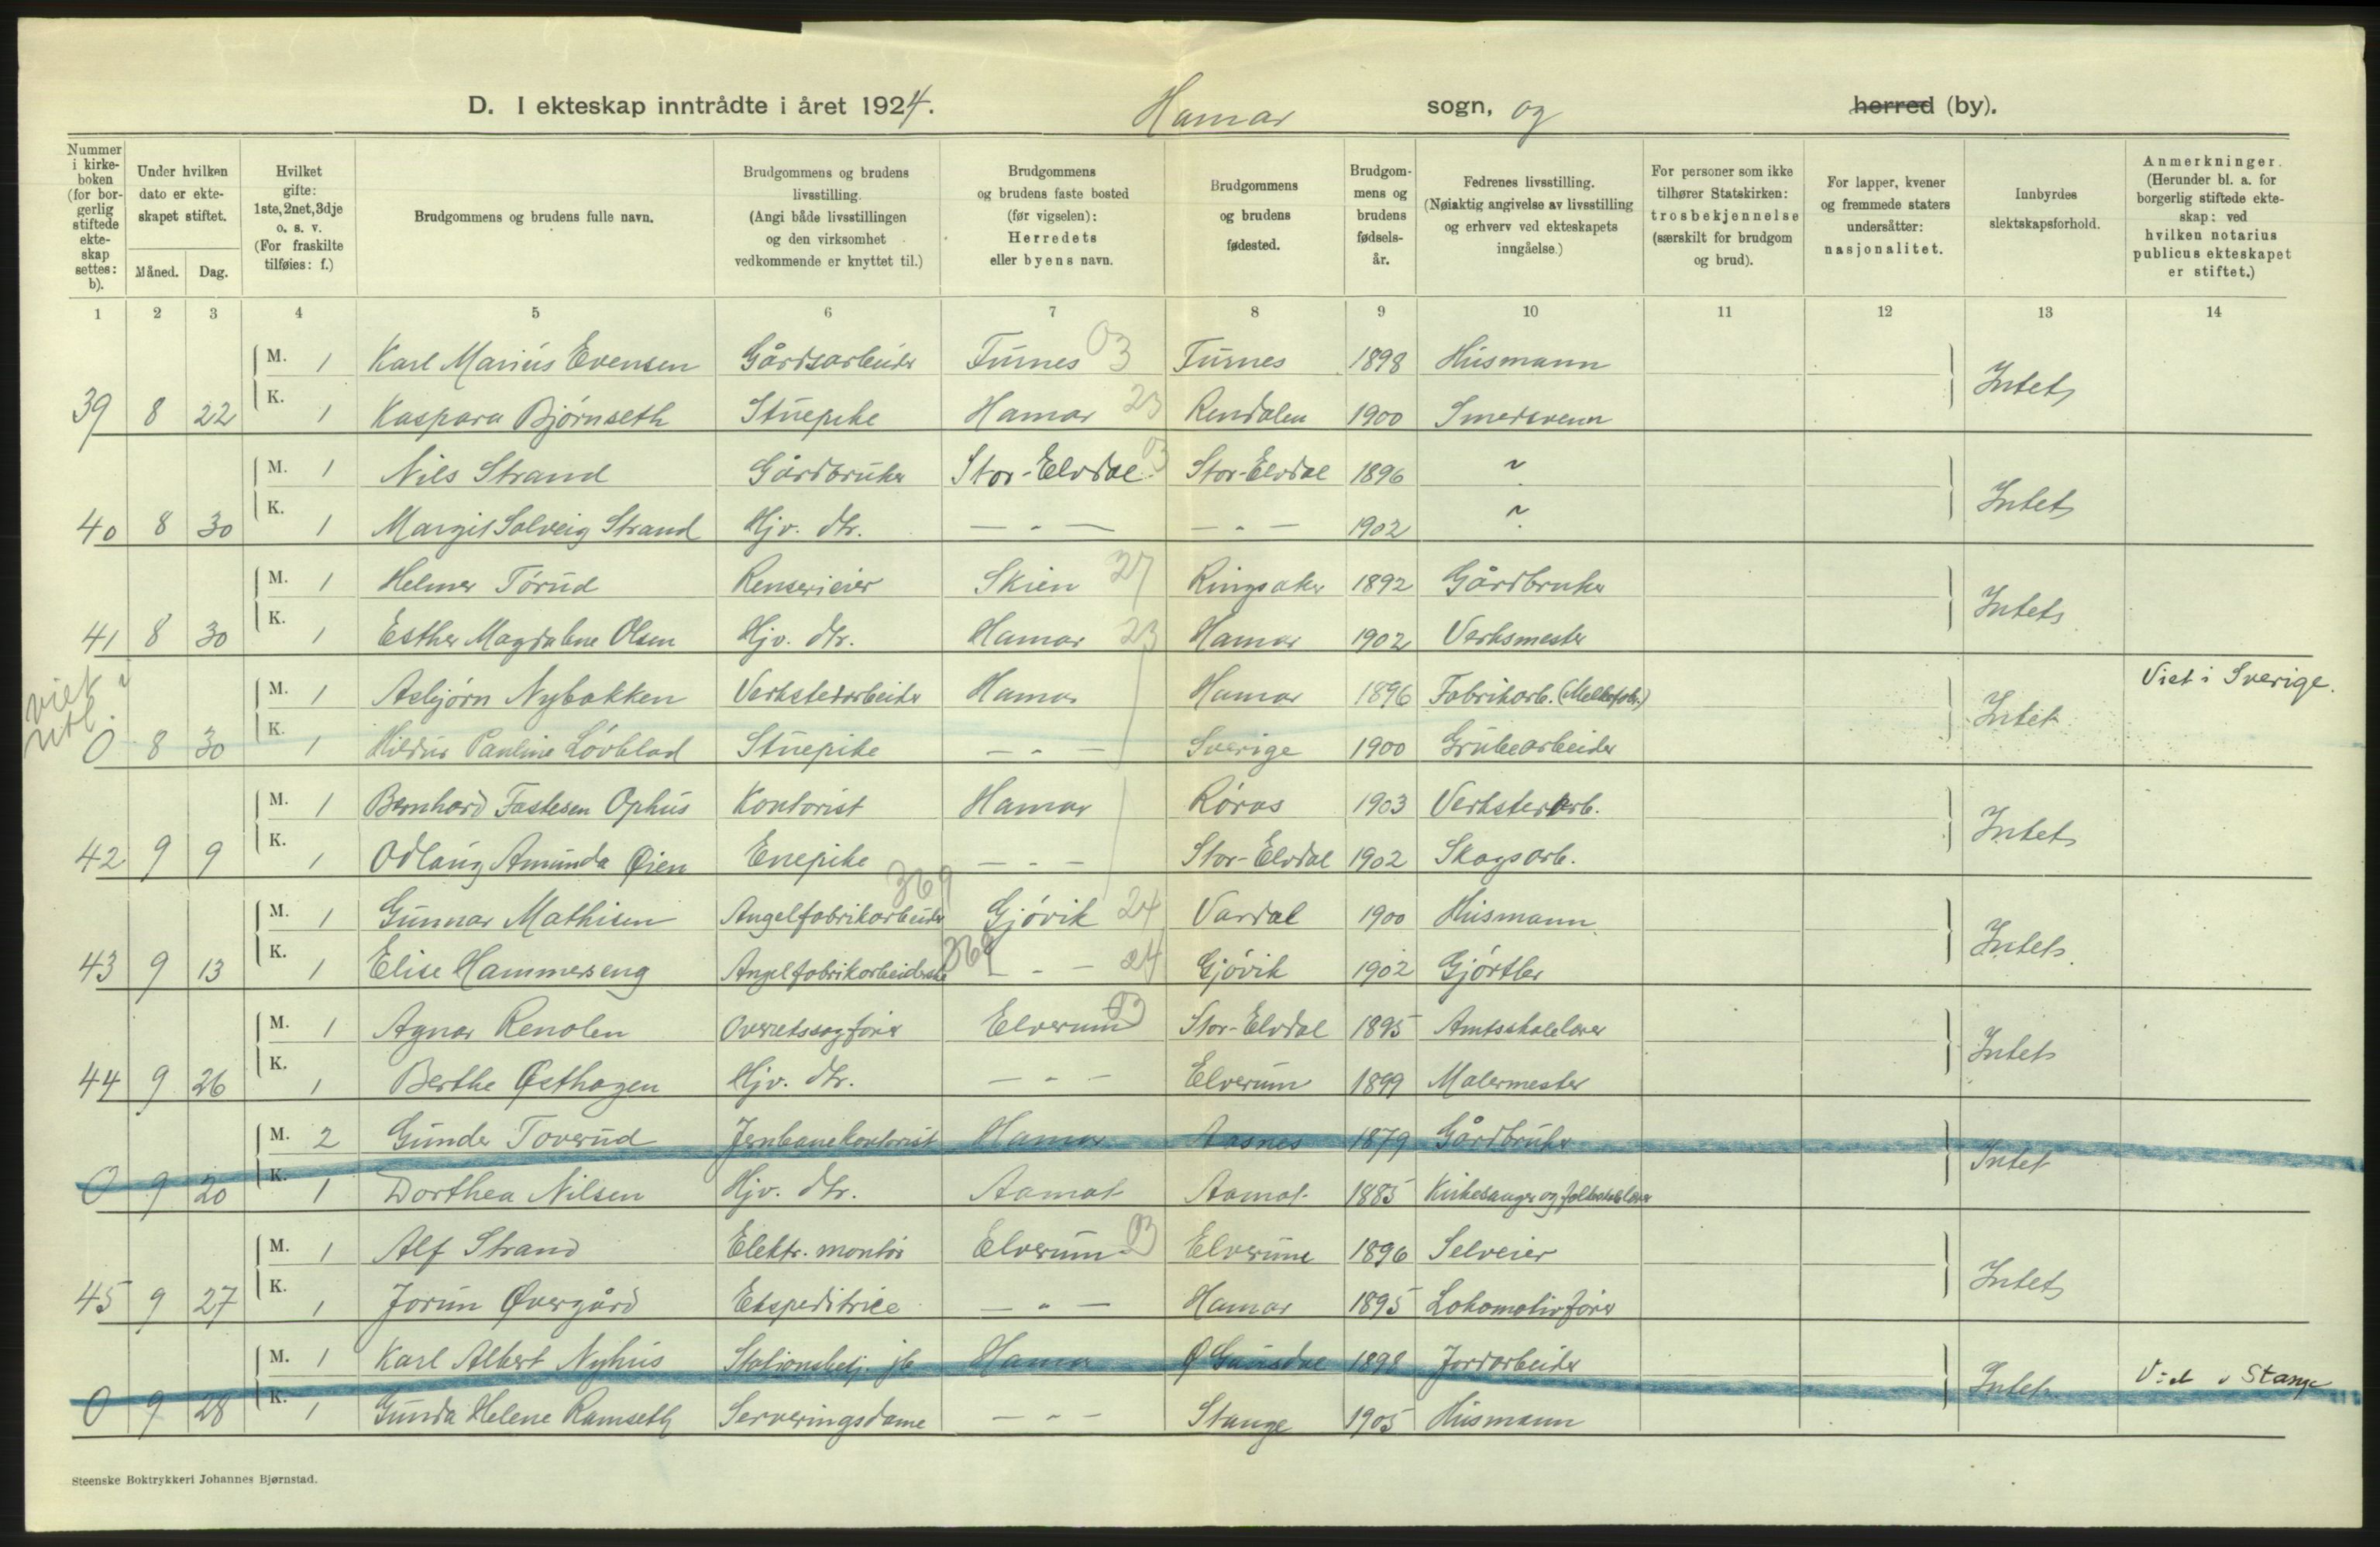 D. I ekteskap inntrådte i året 1924. Hamar sogn, og herred (by).
Nummer i kirkeboken (for borgerlig stiftede ekteskap settes: b).
Under hvilken dato er ekteskapet stiftet.
Måned. Dag.
Hvilket gifte: 1ste, 2net, 3dje o. s. v. (For fraskilte tilføies: f.)
Brudgommens og brudens fulle navn.
Brudgommens og brudens livsstilling. (Angi både livsstillingen og den virksomhet vedkommende er knyttet til.)
Brudgommens og brudens faste bosted (før vigselen): Herredets eller byens navn.
Brudgommens og brudens fødested.
Brudgommens og brudens fødselsår.
Fedrenes livsstilling. (Nøiaktig angivelse av livsstilling og erhverv ved ekteskapets inngåelse.)
For personer som ikke tilhører Statskirken: trosbekjennelse (særskilt for brudgom og brud).
For lapper, kvener og fremmede staters undersåtter: nasjonalitet.
Innbyrdes slektskapsforhold.
Anmerkninger. (Herunder bl. a. for borgerlig stiftede ekteskap: ved hvilken notarius publicus ekteskapet er stiftet.)
1 2 3 4 5 6 7 8 9 10 11 12 13 14
M. 1 Karl Marius Evensen Gårdsarbeider Furnes 03 Furnes 1898 Husmann Intet
39 8 22 K. 1 Kaspara Bjørnseth Stuepike Hamar 23 Rendalen 1900 Smedsvenn
M. 1 Nils Strand Gårdbruker Stor-Elvdal 03 Stor-Elvdal 1896 ~ Intet
40 8 30 K. 1 Margit Solveig Strand Hjv. dtr. — " — — " — 1902 ~
M. 1 Helmer Tørud Renserieier Skien 27 Ringsaker 1892 Gårdbruker Intet
41 8 30 K. 1 Esther Magdalene Olsen Hjv. dtr. Hamar 23 Hamar 1902 Verksmester
viet i utl. M. 1 Asbjørn Nybakken Verkstedarbeider Hamar Hamar 1896 Fabrikarb. (Melkefabr.) Intet Viet i Sverige.
0 8 30 K. 1 Hildur Pauline Løvblad Stuepike — " — Sverige 1900 Grubearbeider
M. 1 Bernhard Fastesen Ophus Kontorist Hamar Røros 1903 Verkstedarb. Intet
42 9 9 K. 1 Odlaug Amunda Øien Enepike — " — Stor-Elvdal 1902 Skogsarb.
M. 1 Gunnar Mathisen Angelfabrikarbeider 369 Gjøvik 24 Vardal 1900 Husmann Intet
43 9 13 K. 1 Elise Hammerseng Angelfabrikarbeiderske 369 — " — 24 Gjøvik 1902 Gjørtler
M. 1 Agnar Renolen Overretssagfører Elverum 03 Stor-Elvdal 1895 Amtsskolelærer Intet
44 9 26 K. 1 Berthe Østhagen Hjv. dtr. — " — Elverum 1899 Malermester
M. 2 Gunder Toverud Jernbanekontorist Hamar Aasnes 1879 Gårdbruker Intet
0 9 20 K. 1 Dorthea Nilsen Hjv. dtr. Aamot Aamot 1885 Kirkesanger og folkeskolelærer
M. 1 Alf Strand Elektr. montør Elverum 03 Elverum 1896 Selveier Intet
45 9 27 K. 1 Jorun Øvergård Ekspeditrice — " — Hamar 1895 Lokomotivfører
M. 1 Karl Albert Nyhus Stationsbetj. jb Hamar Ø Gausdal 1898 Jordarbeider Intet Viet i Stange
0 9 28 K. 1 Gunda Helene Ramseth Serveringsdame — " — Stange 1905 Husmann
Steenske Boktrykkeri Johannes Bjørnstad.